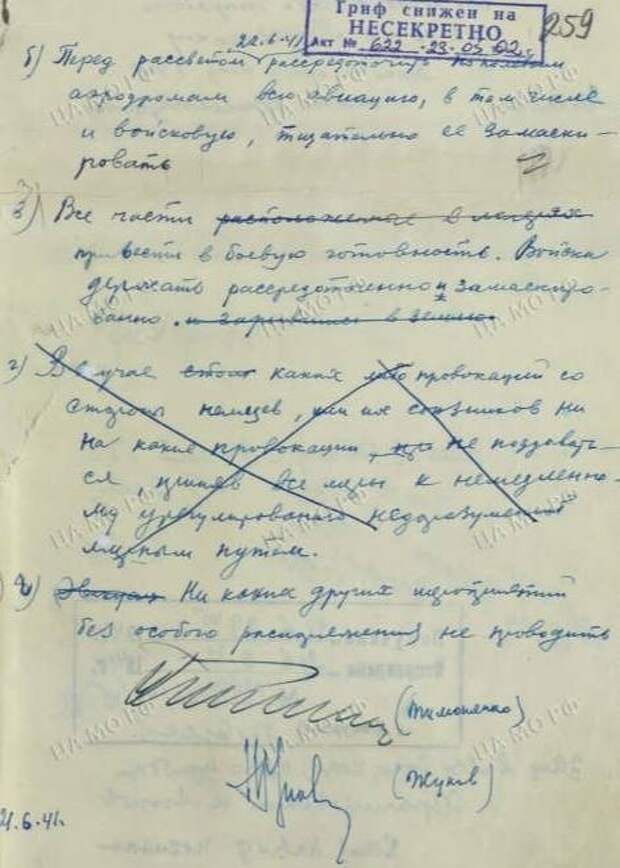 Гриф снижен на
НЕСЕКРЕТНО
Акт № 622 28.05.02г.
259
22.6.41
б) Перед рассветом рассредоточить по полевым
аэродромам всю авиацию, в том числе
и войсковую, тщательно ее замаски-
ровать
в) Все части расположенные в лагерях
привести в боевую готовность. Войска
держать рассредоточенно и замаскиро-
ванно. и зарывшись в землю
г) В случае каких либо провокаций со
стороны немцев, или их союзников ни
на какие провокации, не поддавать-
ся, приняв все меры к немедленно-
му урегулированию недоразумения
мирным путем.
Ни каких других мероприятий
без особого распоряжения не проводить
(Тимошенко)
(Жуков)
21.6.41.
ЦА МО РФ